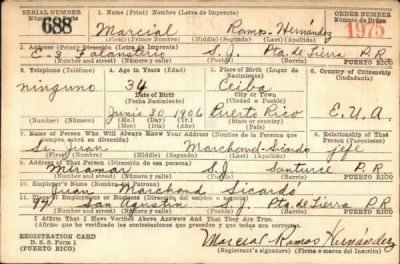 SERIAL NUMBER 1. Name (Print) / Nombre (Letra de Imprenta) ORDER NUMBER
Número de Serie Número de Orden
688 Marcial Ramos Hernández 1975
(First) (Primer Nombre) (Middle) (Segundo) (Last) (Apellidos)
2. Address (Print) / Dirección (Letra de Imprenta)
E-3 Falansterio S.J. Pta. de Tierra P.R.
(Number) (Número) (Street) (Calle) (Town) (Pueblo) (Barrio) PUERTO RICO
3. Telephone / Teléfono 4. Age in Years (Edad) 5. Place of Birth (Lugar de Nacimiento) 6. Country of Citizenship
Ciudadanía
ninguno 34 Ceiba
Date of Birth City or Town
(Fecha Nacimiento) (Ciudad o Pueblo)
Junio 30 1906 Puerto Rico E.U.A.
(Number) (Número) (Mo.) (Day) (Yr.) State or country
(Mes) (Día) (Año) (Estado o país)
7. Name of Person Who Will Always Know Your Address (Nombre de la Persona que siempre sabrá su dirección) 8. Relationship of That Person (Parentesco)
Sr. Juan Marchand-Sicardó jefe
(First) (Nombre) (Middle) (Segundo) (Last) (Apellido)
9. Address of That Person (Dirección de esa persona)
Miramar S.J. Santurce P.R.
(Number) (Número) (Street) (Calle) (Town) (Pueblo) (Barrio) PUERTO RICO
10. Employer's Name / Patrono
Juan Marchand Sicardó
11. Place of Employment or Business (Dirección del empleo o negocio)
San Agustín S.J. Pta de Tierra P.R.
(Number) (Número) (Street) (Calle) (Town) (Pueblo) (Barrio) PUERTO RICO
I Affirm That I Have Verified Above Answers And That They Are True.
(Afirmo que he verificado las contestaciones que preceden y que todas son correctas).
REGISTRATION CARD
D. S. S. Form 1
(PUERTO RICO)
Marcial Ramos Hernández
(Registrant's signature) (Firma o marca del Inscrito)